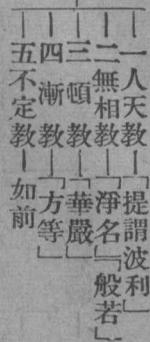 一人天教—「提謂波利」
二無相教—「淨名」「般若」
三頓教—「華嚴」
四漸教—「方等」
五不定教—如前